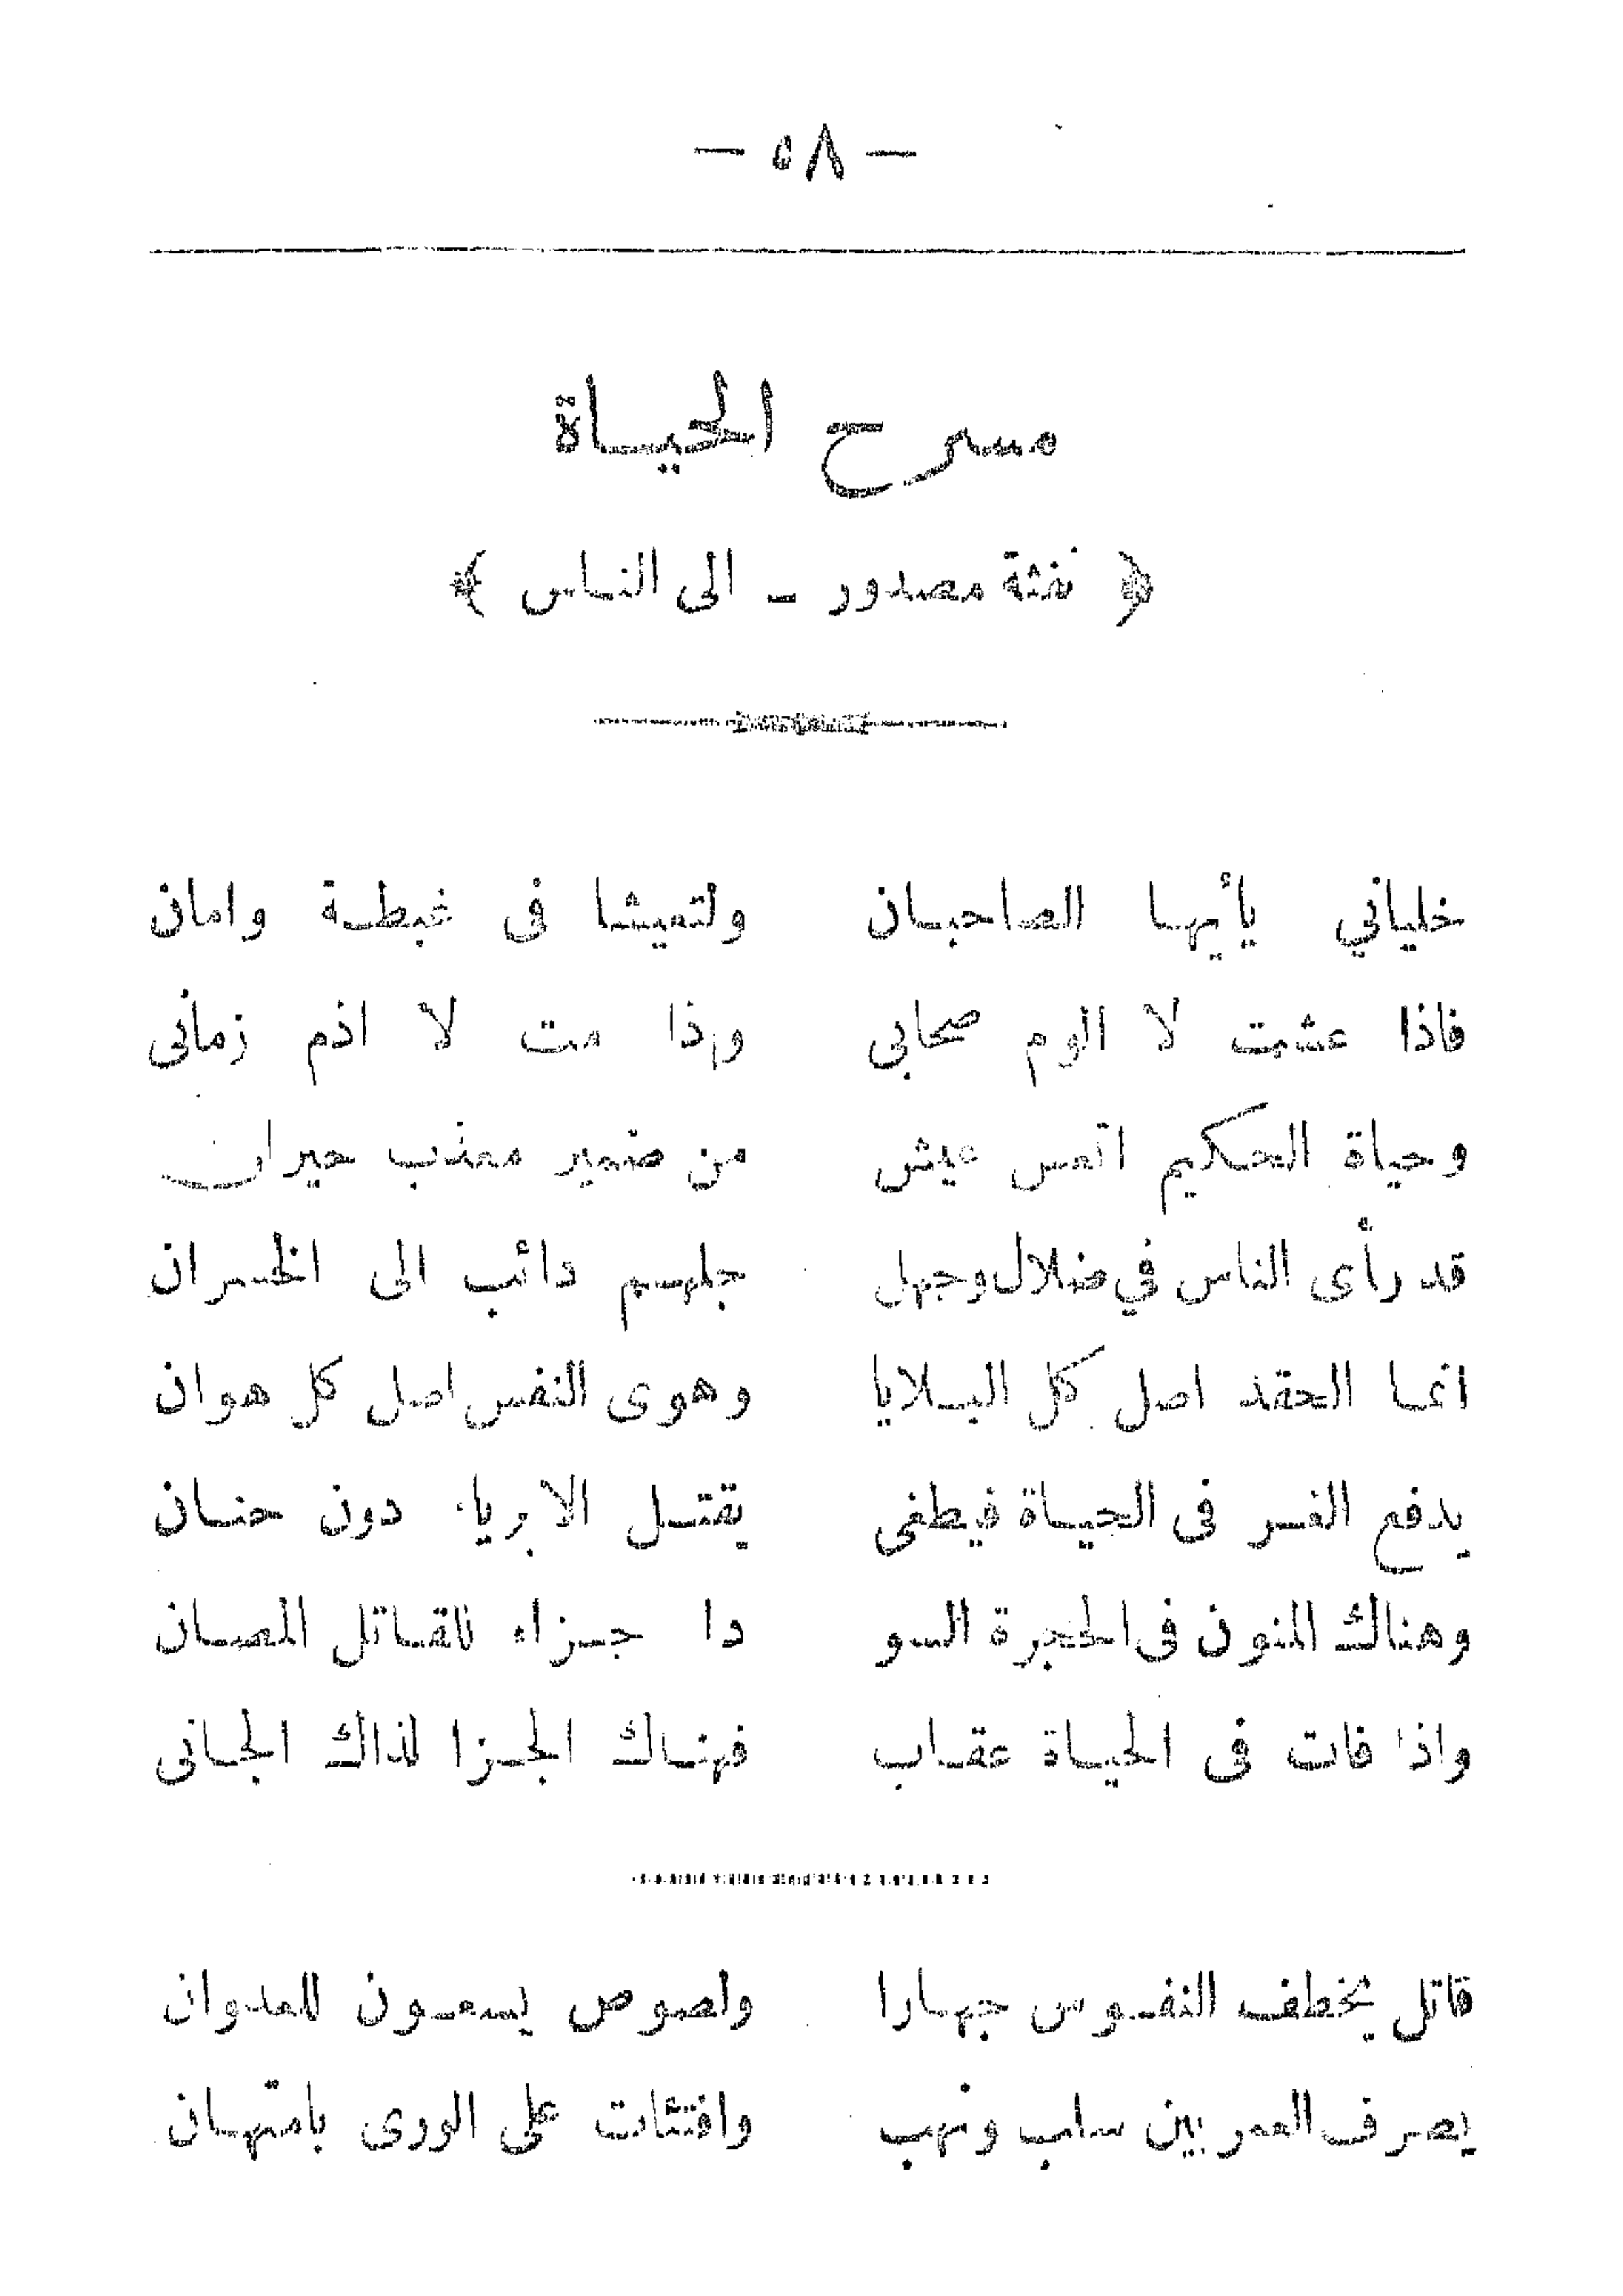 — ٥٨ —
مسرح الحياة
﴿ نفثة مصدور - الى الناس ﴾
خلياني يأيها الصاحبان ولتعيشا فى غبطة وامان
فاذا عشت لا الوم صحابى وإذا مت لا اذم زمانى
وحياة الحكيم اتعس عيش من ضمير معذب حيران
قد رأى الناس في ضلال وجهل جلهم دائب الى الخسران
انما الحقد اصل كل البلايا وهوى النفس اصل كل هوان
يدفع الغر فى الحياة فيطغى يقتل الابرياء دون حنان
وهناك المنون فى الحجرة السو دا جزاء للقاتل المصان
واذا فات فى الحياة عقاب فهناك الجزا لذاك الجانى
قاتل يخطف النفوس جهارا ولصوص يسعون للعدوان
يصرف العمر بين سلب ونهب وافتئات على الورى بامتهان